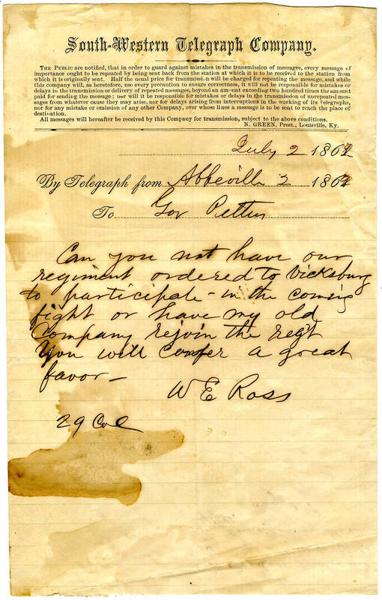 South-Western Telegraph Company.
THE PUBLIC are notified, that in order to guard against mistakes in the transmission of messages, every message of
importance ought to be repeated by being sent back from the station at which it is to be received to the station from
which it is originally sent. Half the usual price for transmission will be charged for repeating the message, and while
this company will, as heretofore, use every precaution to ensure correctness, it will not be responsible for mistakes or
delays in the transmission or delivery of repeated messages, beyond an amount exceeding two hundred times the amount
paid for sending the message; nor will it be responsible for mistakes or delays in the transmission of unrepeated mes-
sages from whatever cause they may arise, nor for delays arising from interruptions in the working of its telegraphs,
nor for any mistake or omission of any other Company, over whose lines a message is to be sent to reach the place of
destination.
All messages will hereafter be received by this Company for transmission, subject to the above conditions.
N. GREEN, Prest., Louisville, Ky.
July 2 1862
By Telegraph from Abbeville 2 1862
To Gov Pettus
Can you not have our
regiment ordered to Vicksburg
to participate in the coming
fight or have my old
Company rejoin the regt
You will confer a great
favor -
W E Ross
29 Col